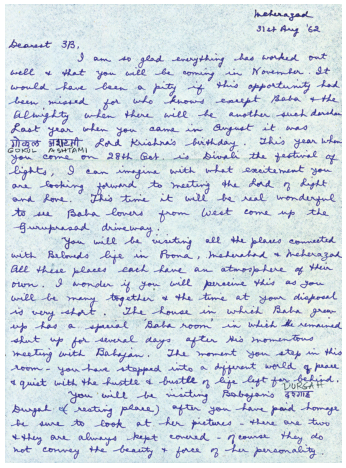 Meherazad
31st Aug '62
Dearest 3/B,
I am so glad everything has worked out
well & that you will be coming in November. It
would have been a pity if this opportunity had
been missed for who knows except Baba & the
Almighty when there will be another such darshan
Last year when you came in August it was
गोकुल अष्टमी Lord Krishna's birthday. This year when
GOKUL ASHTAMI
you come on 28th Oct. is Divali the festival of
lights, I can imagine with what excitement you
are looking forward to meeting the Lord of light
and love. This time it will be real wonderful
to see Baba lovers from West come up the
Guruprasad driveway.
You will be visiting all the places connected
with Beloveds life in Poona, Meherabad & Meherazad
All these places each have an atmosphere of their
own. I wonder if you will perceive this as you
will be many together & the time at your disposal
is very short. The house in which Baba grew
up has a special Baba room in which He remained
shut up for several days after His momentous
meeting with Babajan. The moment you step in this
room - you have stepped into a different world of peace
& quiet with the hustle & bustle of life left far behind.
DURGAH
You will be visiting Babajan's दरगाह
Durgah (resting place) after you have paid homage
be sure to look at her pictures - there are two
& they are always kept covered - of course they do
not convey the beauty & force of her personality.